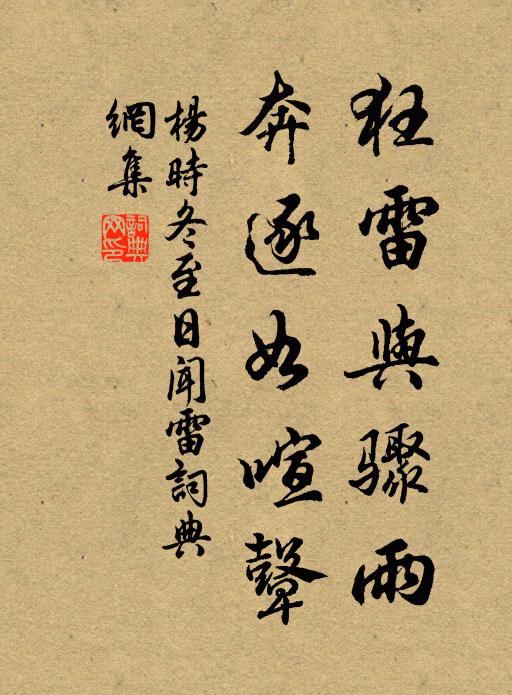 狂雷與驟雨
奔逐如喧鼙
楊時冬至日聞雷詞典
網集
詞典
网印